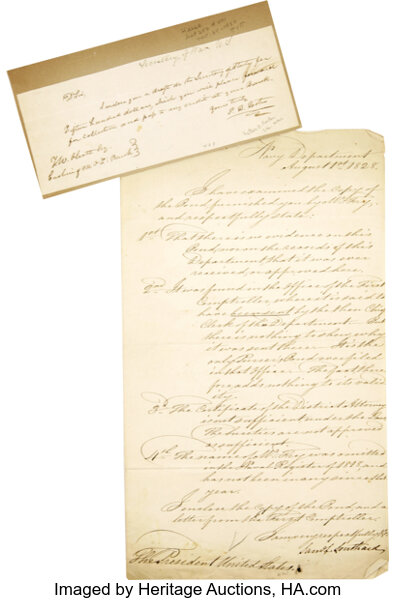 Secretary of War U.S.
I enclose you a draft on the
Fifteen hundred dollars, which you will please forward
for collection and pass to my credit at your Bank.
Yours truly
Cashier
Navy Department
August 1828.
I have examined the Copy of
the Bond furnished you by Mr. Fry,
and respectfully state:
1st That there is no evidence on this
Bond, nor on the records of this
Department that it was ever
received or approved here.
2nd It was found in the Office of the First
Comptroller, where it is said to
have been sent by the then Chief
Clerk of the Department. But
there is nothing to show why
it was sent there. It is the
only Purser's Bond ever filed
in that Office. The fact there-
fore adds nothing to its valid-
ity.
3d The Certificate of the District Attorney
is not sufficient under the Law.
The Sureties are not approved
as sufficient.
4th The name of Mr. Fry was omitted
in the Naval Register of 18 and
has not been in any since that
year.
I enclose the Copy of the Bond, and a
letter from the First Comptroller.
I am very respectfully &c
Saml. L. Southard
The President United States.
Imaged by Heritage Auctions, HA.com